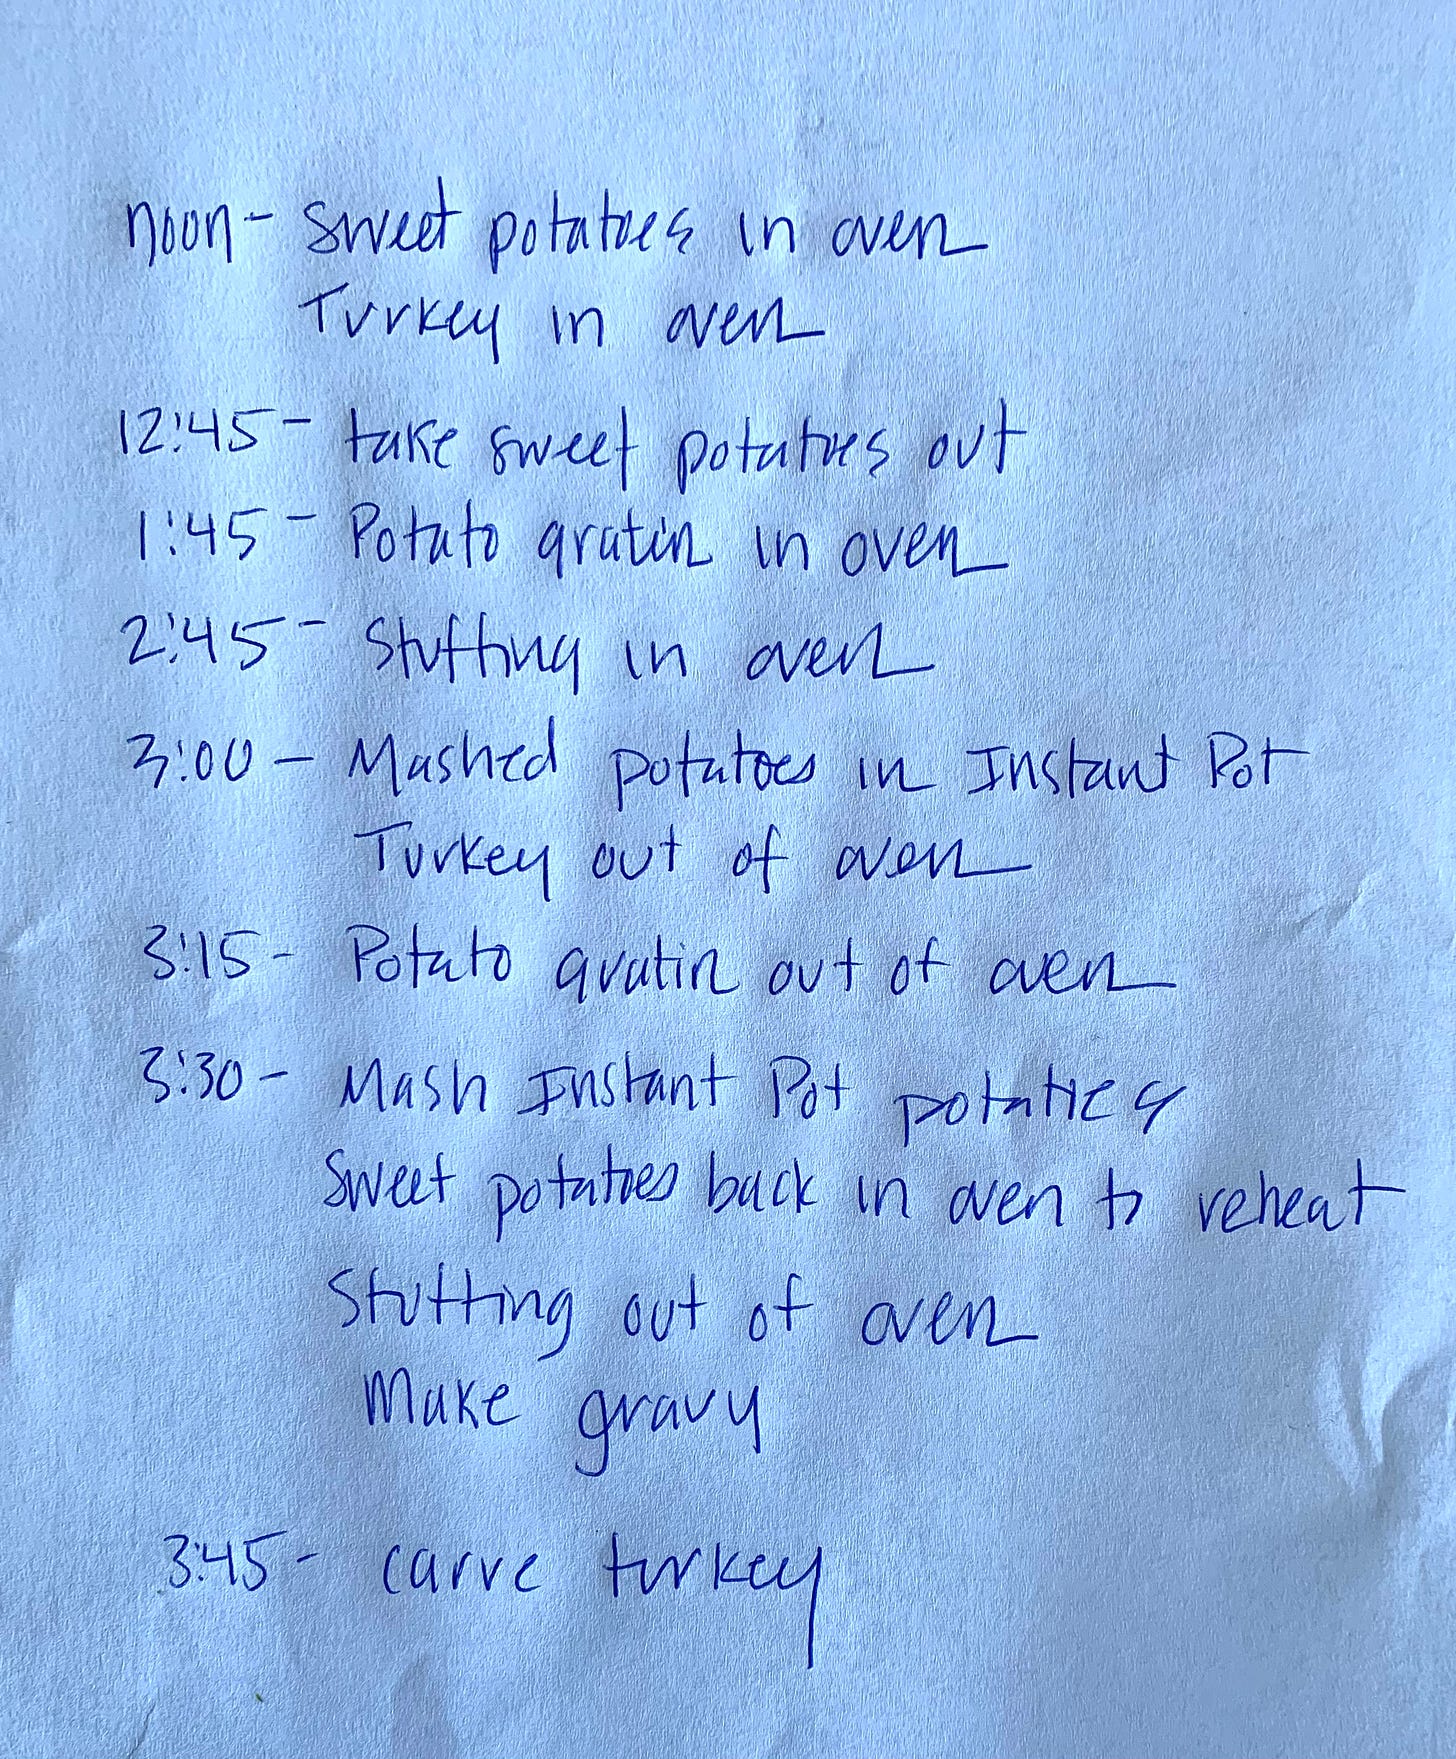 noon - Sweet potatoes in oven
Turkey in oven
12:45 - take sweet potatoes out
1:45 - Potato gratin in oven
2:45 - Stuffing in oven
3:00 - Mashed potatoes in Instant Pot
Turkey out of oven
3:15 - Potato gratin out of oven
3:30 - Mash Instant Pot potatoes
Sweet potatoes back in oven to reheat
Stuffing out of oven
Make gravy
3:45 - carve turkey